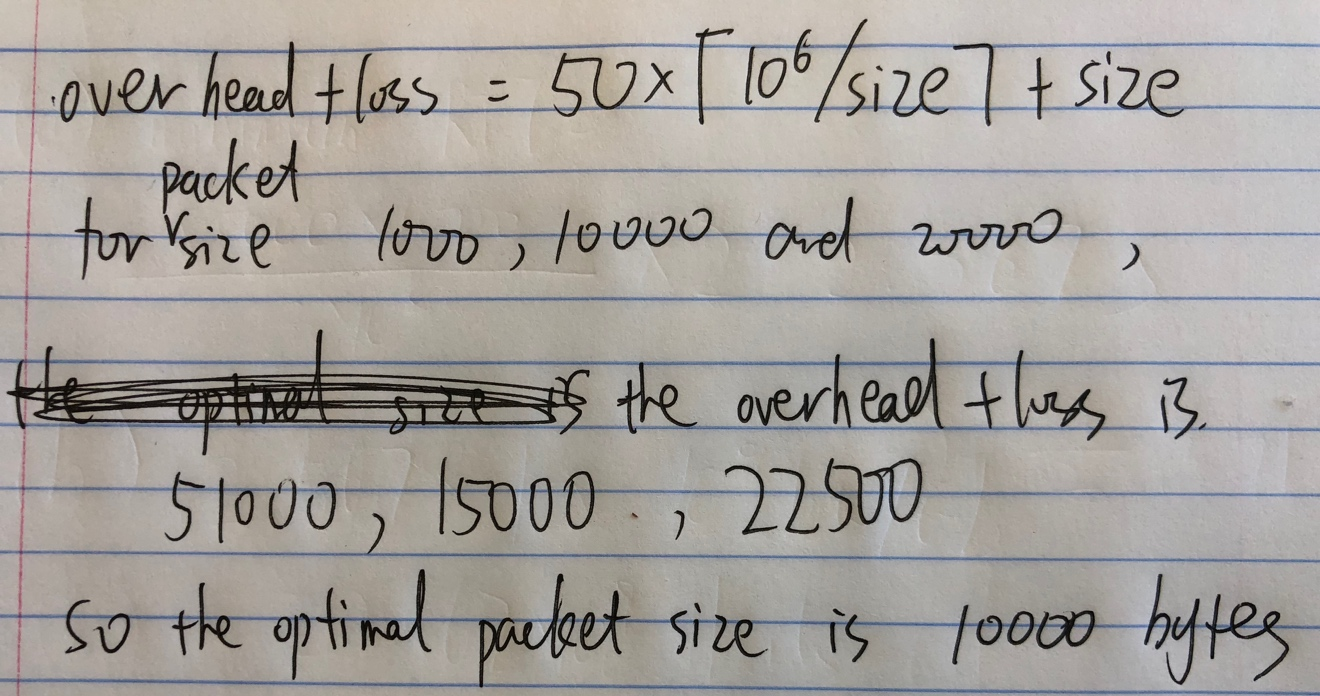 overhead + loss = 50 × ⌈10⁶/size⌉ + size
packet
for size 1000, 10000 and 20000,
the optimal size is the overhead + loss is.
51000, 15000, 22500
so the optimal packet size is 10000 bytes